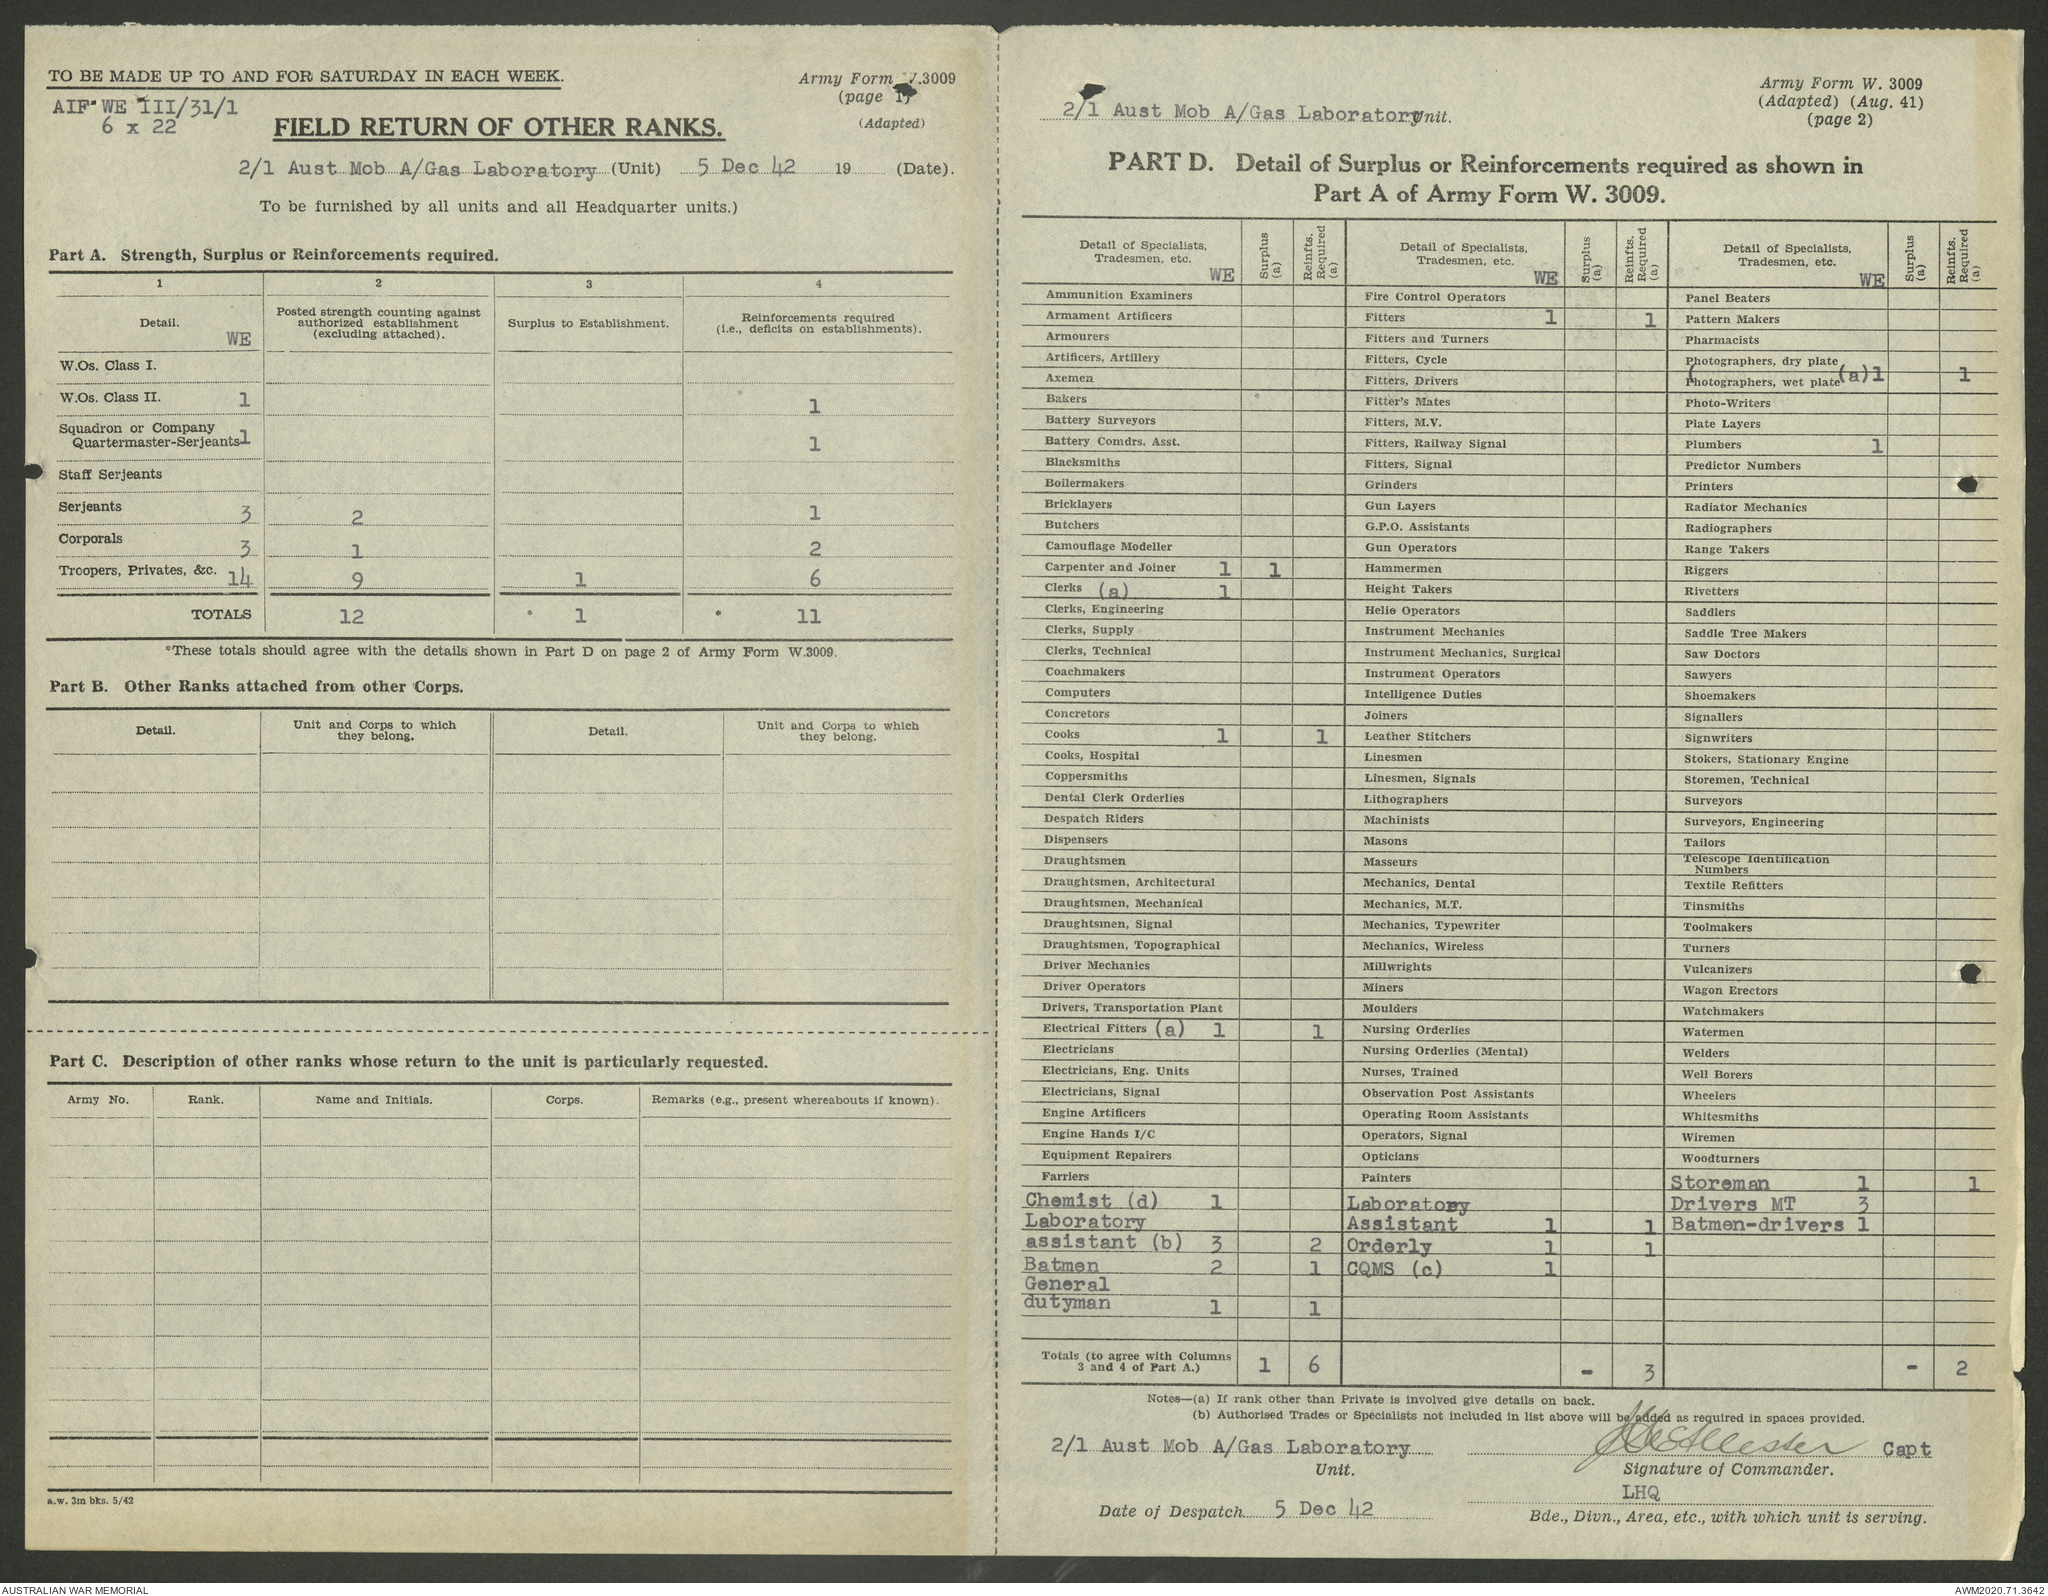 TO BE MADE UP TO AND FOR SATURDAY IN EACH WEEK.
Army Form W.3009
(page 1)
(Adapted)
AIF WE III/31/1
6 x 22
FIELD RETURN OF OTHER RANKS.
2/1 Aust Mob A/Gas Laboratory (Unit) 5 Dec 42 19 (Date).
To be furnished by all units and all Headquarter units.)
Part A. Strength, Surplus or Reinforcements required.
1 2 3 4
Detail. WE Posted strength counting against authorized establishment (excluding attached). Surplus to Establishment. Reinforcements required (i.e., deficits on establishments).
W.Os. Class I.
W.Os. Class II. 1 1
Squadron or Company
Quartermaster-Serjeants 1 1
Staff Serjeants
Serjeants 3 2 1
Corporals 3 1 2
Troopers, Privates, &c. 14 9 1 6
TOTALS 12 * 1 * 11
*These totals should agree with the details shown in Part D on page 2 of Army Form W.3009.
Part B. Other Ranks attached from other Corps.
Detail. Unit and Corps to which they belong. Detail. Unit and Corps to which they belong.
Part C. Description of other ranks whose return to the unit is particularly requested.
Army No. Rank. Name and Initials. Corps. Remarks (e.g., present whereabouts if known).
a.w. 3m bks. 5/42
Army Form W. 3009
(Adapted) (Aug. 41)
(page 2)
2/1 Aust Mob A/Gas Laboratory Unit.
PART D. Detail of Surplus or Reinforcements required as shown in
Part A of Army Form W. 3009.
Detail of Specialists, Tradesmen, etc. WE Surplus (a) Reinfts. Required (a)
Ammunition Examiners
Armament Artificers
Armourers
Artificers, Artillery
Axemen
Bakers
Battery Surveyors
Battery Comdrs. Asst.
Blacksmiths
Boilermakers
Bricklayers
Butchers
Camouflage Modeller
Carpenter and Joiner 1 1
Clerks (a) 1
Clerks, Engineering
Clerks, Supply
Clerks, Technical
Coachmakers
Computers
Concretors
Cooks 1 1
Cooks, Hospital
Coppersmiths
Dental Clerk Orderlies
Despatch Riders
Dispensers
Draughtsmen
Draughtsmen, Architectural
Draughtsmen, Mechanical
Draughtsmen, Signal
Draughtsmen, Topographical
Driver Mechanics
Driver Operators
Drivers, Transportation Plant
Electrical Fitters (a) 1 1
Electricians
Electricians, Eng. Units
Electricians, Signal
Engine Artificers
Engine Hands I/C
Equipment Repairers
Farriers
Chemist (d) 1
Laboratory
assistant (b) 3 2
Batmen 2 1
General
dutyman 1 1
Totals (to agree with Columns
3 and 4 of Part A.) 1 6
Detail of Specialists, Tradesmen, etc. WE Surplus (a) Reinfts. Required (a)
Fire Control Operators
Fitters 1 1
Fitters and Turners
Fitters, Cycle
Fitters, Drivers
Fitter's Mates
Fitters, M.V.
Fitters, Railway Signal
Fitters, Signal
Grinders
Gun Layers
G.P.O. Assistants
Gun Operators
Hammermen
Height Takers
Helio Operators
Instrument Mechanics
Instrument Mechanics, Surgical
Instrument Operators
Intelligence Duties
Joiners
Leather Stitchers
Linesmen
Linesmen, Signals
Lithographers
Machinists
Masons
Masseurs
Mechanics, Dental
Mechanics, M.T.
Mechanics, Typewriter
Mechanics, Wireless
Millwrights
Miners
Moulders
Nursing Orderlies
Nursing Orderlies (Mental)
Nurses, Trained
Observation Post Assistants
Operating Room Assistants
Operators, Signal
Opticians
Painters
Laboratory
Assistant 1 1
Orderly 1 1
CQMS (c) 1
- 3
Detail of Specialists, Tradesmen, etc. WE Surplus (a) Reinfts. Required (a)
Panel Beaters
Pattern Makers
Pharmacists
Photographers, dry plate
(Photographers, wet plate (a) 1 1
Photo-Writers
Plate Layers
Plumbers 1
Predictor Numbers
Printers
Radiator Mechanics
Radiographers
Range Takers
Riggers
Rivetters
Saddlers
Saddle Tree Makers
Saw Doctors
Sawyers
Shoemakers
Signallers
Signwriters
Stokers, Stationary Engine
Storemen, Technical
Surveyors
Surveyors, Engineering
Tailors
Telescope Identification
Numbers
Textile Refitters
Tinsmiths
Toolmakers
Turners
Vulcanizers
Wagon Erectors
Watchmakers
Watermen
Welders
Well Borers
Wheelers
Whitesmiths
Wiremen
Woodturners
Storeman 1 1
Drivers MT 3
Batmen-drivers 1
- 2
Notes—(a) If rank other than Private is involved give details on back.
(b) Authorised Trades or Specialists not included in list above will be added as required in spaces provided.
2/1 Aust Mob A/Gas Laboratory Capt
Unit. Signature of Commander.
LHQ
Date of Despatch 5 Dec 42 Bde., Divn., Area, etc., with which unit is serving.
AUSTRALIAN WAR MEMORIAL AWM2020.71.3642